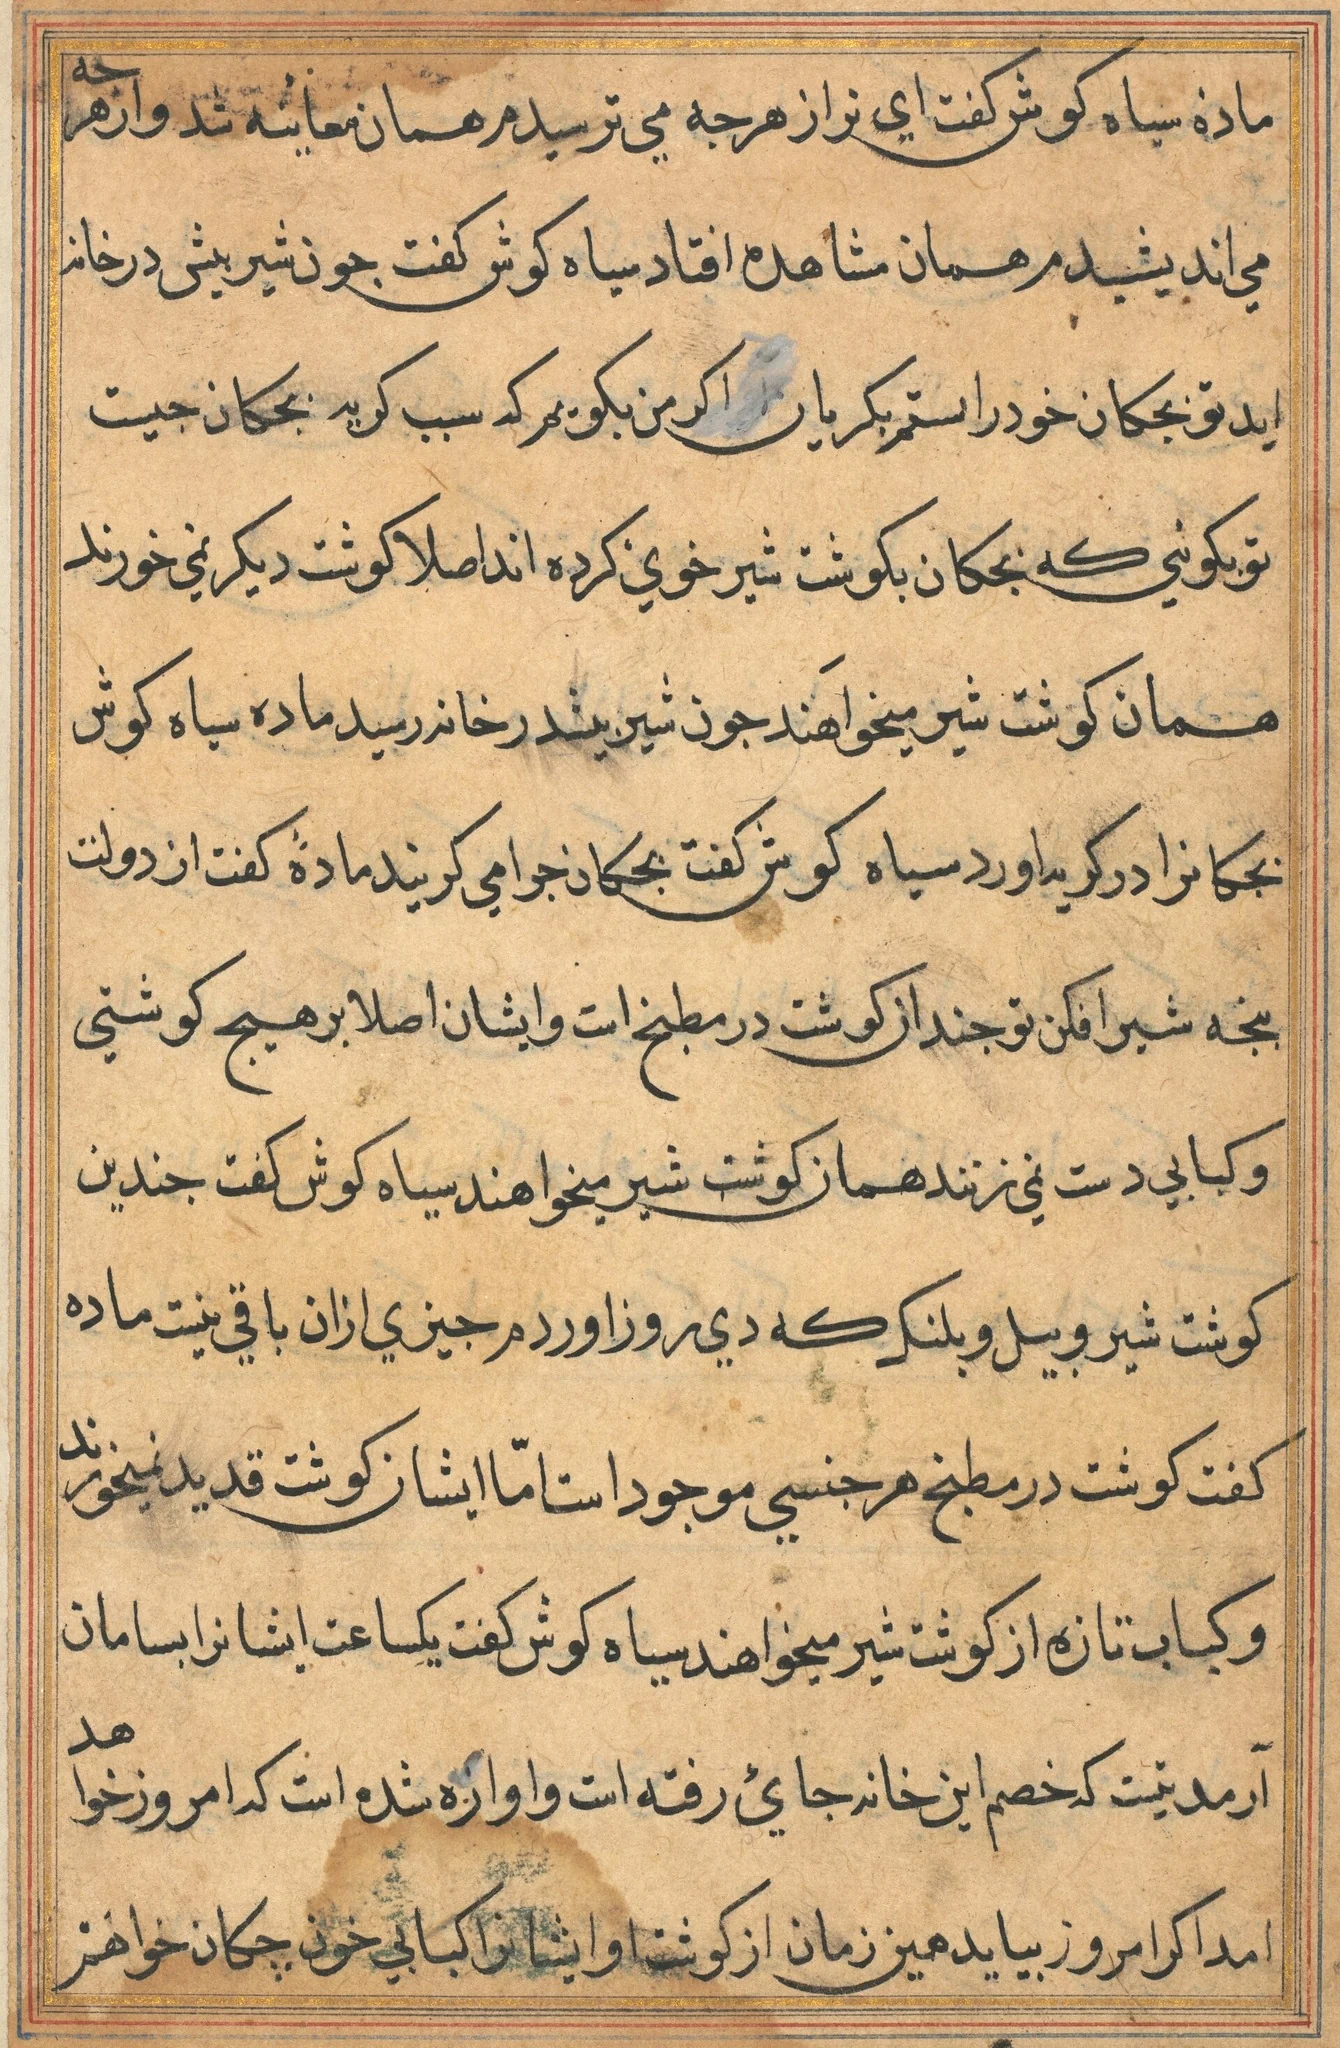 ماده سیاه کوش کفت ای نر از هرجه می ترسیدم همان معاینه شد و از هرجه
می اندیشیدم همان مشاهده افتاد سیاه کوش کفت جون شیر بیش در خانه
اید تو بجکان خود را ستم بکریان اکر من بکویم که سبب کریه بجکان جیست
تو بکوئی که بجکان بکوشت شیر خوی کرده اند اصلا کوشت دیکر نمی خورند
همان کوشت شیر میخواهند جون شیر بیش در خانه رسید ماده سیاه کوش
بجکانرا در کریه اورد سیاه کوش کفت بجکان جرا می کریند مادۀ کفت از دولت
بنجه شیر افکن تو جندان کوشت در مطبخ است و ایشان اصلا بر هیج کوشتی
و کبابی دست نمی زنند همان کوشت شیر میخواهند سیاه کوش کفت جندین
کوشت شیر و بیل و بلنک که دی روز اوردم جیزی ازان باقی نیست ماده
کفت کوشت در مطبخ هر جنسی موجود است امّا ایشان کوشت قدید نمیخورند
و کباب تازه از کوشت شیر میخواهند سیاه کوش کفت یکساعت ایشانرا بسامان
آر مدتیست که خصم این خانه جائ رفته است و اوازه شده است که امروز خواهد
امد اکر امروز بیاید همین زمان از کوشت او ایشانرا کبابی خون چکان خواهم